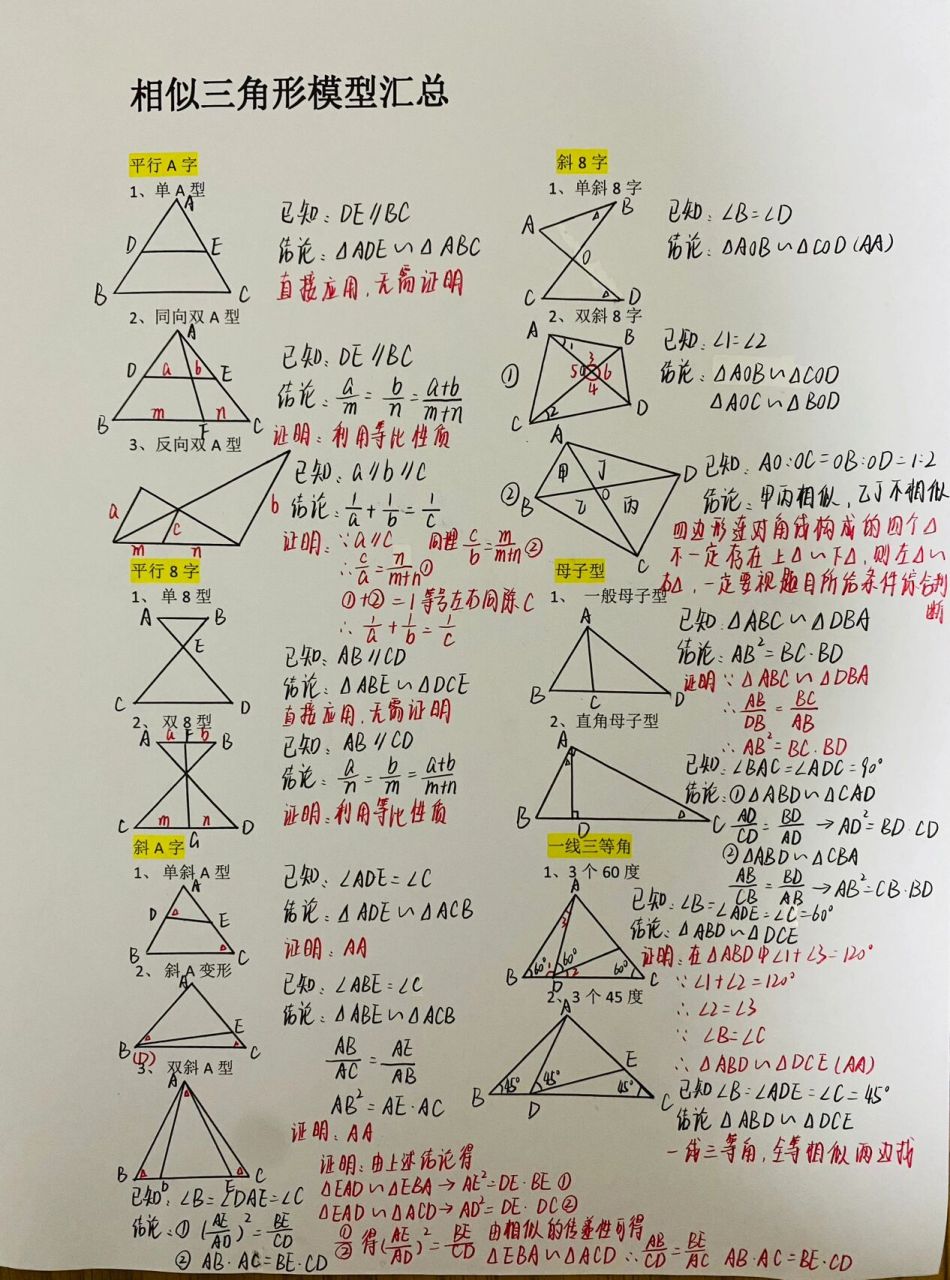 相似三角形模型汇总
平行A字
1、单A型
A
D
E
B
C
已知：DE∥BC
结论：△ADE∽△ABC
直接应用，无需证明
2、同向双A型
A
D a b E
m n
B F C
已知：DE∥BC
结论：a/m = b/n = (a+b)/(m+n)
证明：利用等比性质
3、反向双A型
a
c
b
m n
已知：a∥b∥c
结论：1/a + 1/b = 1/c
证明：∵a∥c 同理 c/b = m/(m+n) ②
∴ c/a = n/(m+n) ①
①+②=1 等号左右同除C
∴ 1/a + 1/b = 1/c
平行8字
1、单8型
A B
E
C D
已知：AB∥CD
结论：△ABE∽△DCE
直接应用，无需证明
2、双8型
A a F b B
m n
C G D
已知：AB∥CD
结论：a/n = b/m = (a+b)/(m+n)
证明：利用等比性质
斜A字
1、单斜A型
A
D
E
B C
已知：∠ADE=∠C
结论：△ADE∽△ACB
证明：AA
2、斜A变形
A
E
B C
(D)
已知：∠ABE=∠C
结论：△ABE∽△ACB
AB/AC = AE/AB
AB²=AE·AC
证明：AA
3、双斜A型
A
B D E C
已知：∠B=∠DAE=∠C
结论：① (AE/AD)² = BE/CD
② AB·AC=BE·CD
证明：由上述结论得
△EAD∽△EBA→AE²=DE·BE ①
△EAD∽△ACD→AD²=DE·DC ②
①/② 得(AE/AD)² = BE/CD 由相似的传递性可得
△EBA∽△ACD ∴ AB/CD = BE/AC AB·AC=BE·CD
斜8字
1、单斜8字
A
B
O
C D
已知：∠B=∠D
结论：△AOB∽△COD(AA)
2、双斜8字
①
A B
1
3
5 O 6
4
2
C D
已知：∠1=∠2
结论：△AOB∽△COD
△AOC∽△BOD
②
A
甲 丁
D
B
O
乙 丙
C
已知：AO:OC=OB:OD=1:2
结论：甲丙相似，乙丁不相似
四边形连对角线构成的四个△
不一定存在上△∽下△，则左△∽
右△，一定要视题目所给条件综合判
断
母子型
1、一般母子型
A
B C D
已知：△ABC∽△DBA
结论：AB²=BC·BD
证明∵△ABC∽△DBA
∴ AB/DB = BC/AB
∴AB²=BC·BD
2、直角母子型
A
B D C
已知：∠BAC=∠ADC=90°
结论：①△ABD∽△CAD
AD/CD = BD/AD →AD²=BD·CD
②△ABD∽△CBA
AB/CB = BD/AB →AB²=CB·BD
一线三等角
1、3个60度
A
3
60° 1 60° 2 60°
B D C
已知：∠B=∠ADE=∠C=60°
结论：△ABD∽△DCE
证明：在△ABD中∠1+∠3=120°
∵∠1+∠2=120°
∴∠2=∠3
∵∠B=∠C
∴△ABD∽△DCE(AA)
2、3个45度
A
E
45° 45° 45°
B D C
已知∠B=∠ADE=∠C=45°
结论△ABD∽△DCE
一线三等角，全等相似两边找